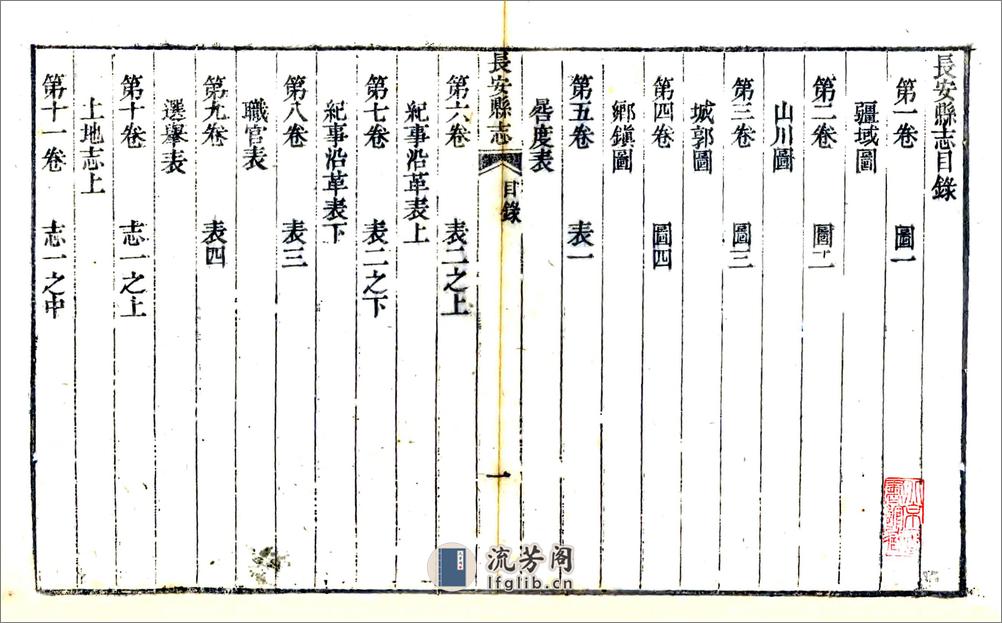 長安縣志目錄
第一卷 圖一
疆域圖
第二卷 圖二
山川圖
第三卷 圖三
城郭圖
第四卷 圖四
鄉鎭圖
第五卷 表一
晷度表
長安縣志 目錄 一
第六卷 表二之上
紀事沿革表上
第七卷 表二之下
紀事沿革表下
第八卷 表三
職官表
第九卷 表四
選舉表
第十卷 志一之上
土地志上
第十一卷 志一之中
流芳阁
lfglib.cn